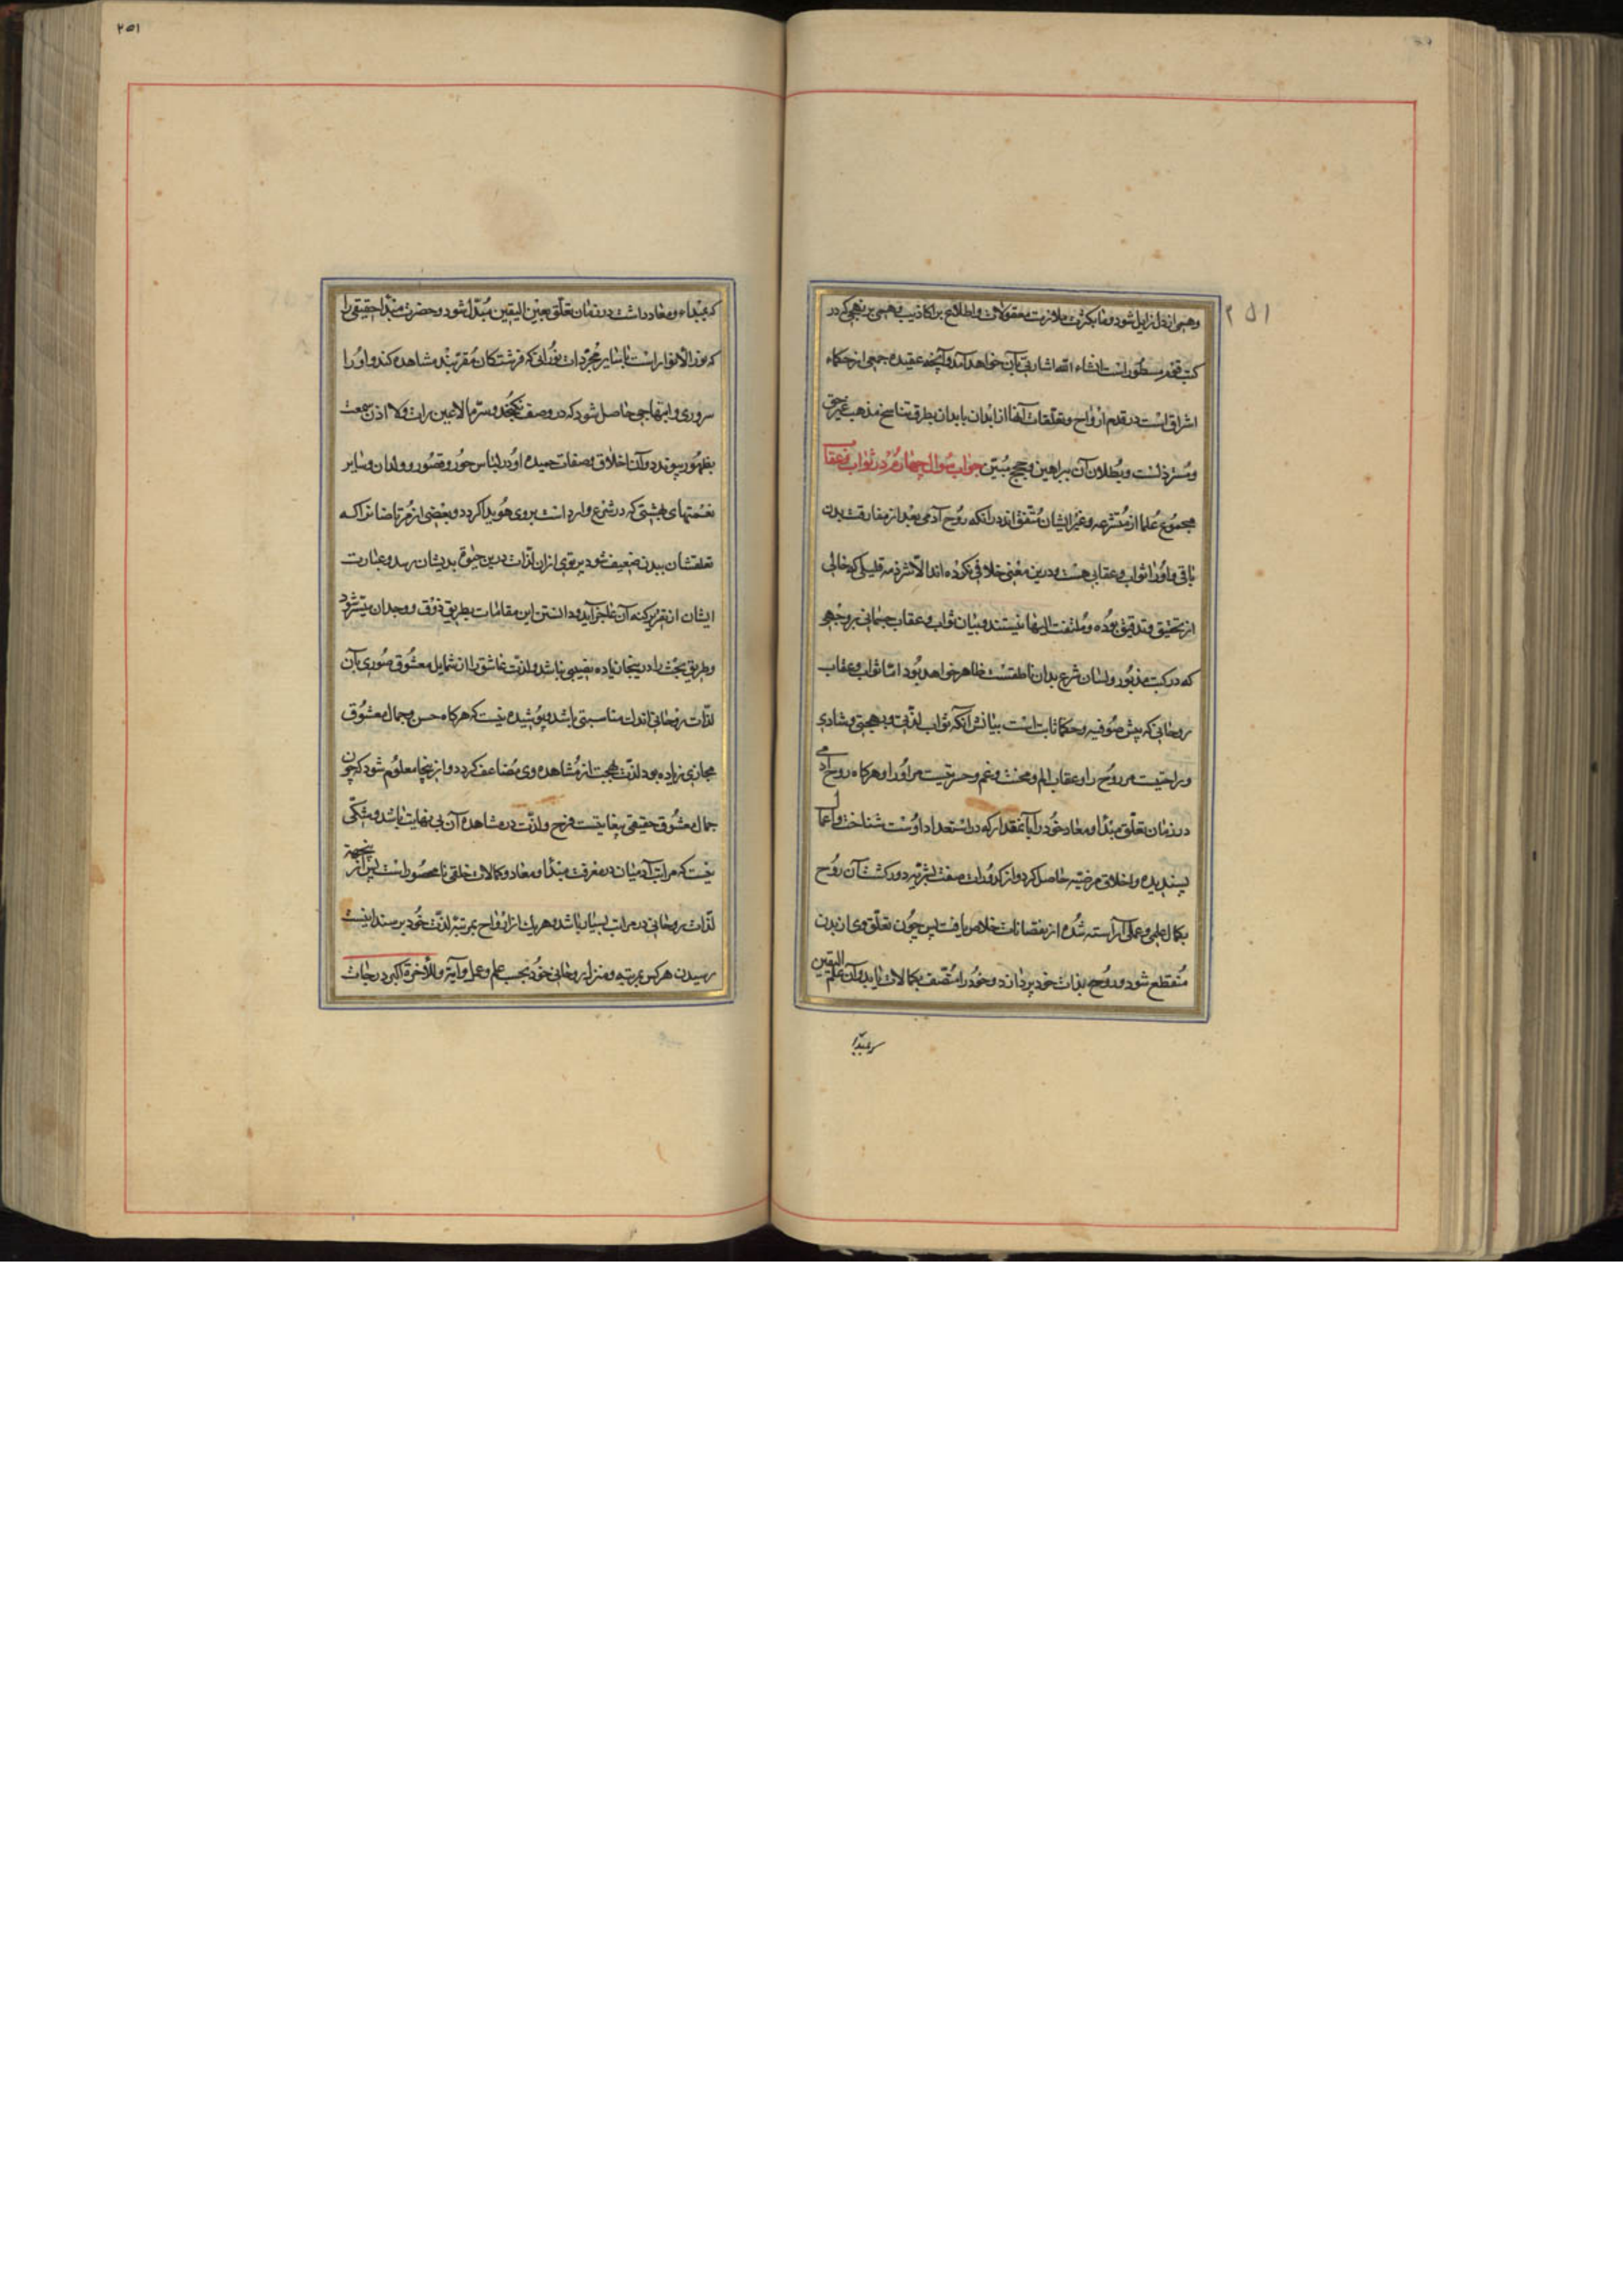 ۲۵۱
وهمی از دل زایل شود و ما بکثرت ملازمت معقولات و اطلاع بر اکاذیب وهمی بر نهجی که در
کتب قوم مسطور است انشاء الله اشارتی بآن خواهد آمد و آنچه عقیده جمعی از حکماء
اشراق است در قدم ارواح و تعلقات آنها از ابدان بابدان بطرق تناسخ مذهب غیر حق
و مسترذلست و بطلان آن ببراهین و حجج مبین جواب سوال چهارم در ثواب و عقا
مجموع علما از متشرعه و غیر ایشان متفق اند در آنکه روح آدمی بعد از مفارقت بدن
باقی و او را ثواب و عقابی هست و درین معنی خلافی نکرده اند الا شرذمه قلیلی که خالی
از تحقیق و تدقیق بوده و ملتفت الیها نیستند و بیان ثواب و عقاب جسمانی بر وجهی
که در کتب مذبور و لسان شرع بدان ناطقست ظاهر خواهد بود اما ثواب و عقاب
روحانی که پیش صوفیه و حکما ثابت است بیانش آنکه ثواب لذتی و بهجتی و شادی
و راحتیست مر روح را و عقاب الم و محنت و غم و حسرتیست مر او را و هر کاه روح آدمی
در زمان تعلق مبدا و معاد خود را بآنمقدار که در استعداد اوست شناخت و اعمال
پسندیده و اخلاق مرضیه حاصل کرد و از کدورات صفت بشریه دور کشت آن روح
بکمال علمی و عملی آراسته شده از نقصانات خلاص یافت پس چون تعلق وی از بدن
منقطع شود و روح بذات خود پردازد و خود را متصف بکمالات یابد و آن علم الیقین
که بمبداء
۲۵۱
که بمبداء و معاد داشت در زمان تعلق بعین الیقین مبدل شود و حضرت مبداحقیقی را
که نور الانوار است با سایر مجردات نورانی که فرشتکان مقربند مشاهده کند و او را
سروری و ابتهاجی حاصل شود که در وصف نکنجد و سر ما لا عین رات و لا اذن سمعت
بظهور پیوندد و آن اخلاق و صفات حمیده او در لباس حور و قصور و ولدان و سایر
نعمتهای بهشتی که در شرع وارد است بروی هویدا کردد و بعضی از مرتاضانرا که
تعلقشان ببدن ضعیف شود پرتوی از ان لذات درین حیوة بدیشان رسد و عبارت
ایشان از تقریر کنه آن عاجز آید و دانستن این مقامات بطریق ذوق و وجدان میسر شود
و طریق بحث را در ینجا زیاده نصیبی نباشد و لذت عاشق را از شمایل معشوق صوری بآن
لذات روحانی اندک مناسبتی باشد و پوشیده نیست که هر کاه حسن و جمال معشوق
مجازی زیاده بود لذت و بهجت از مشاهده وی مضاعف کردد و از ینجا معلوم شود که چون
جمال معشوق حقیقی بیغایتست فرح و لذت در مشاهده آن بی نهایت باشد و شکی
نیست که مراتب آدمیان در معرفت مبدا و معاد و کمالات خلقی نا محصور است پس از ینجهة
لذات روحانی در مراتب بسیار باشد و هر یک از ارواح بمرتبه لذت خود برسند اینست
رسیدن هر کس بمرتبه و منزله روحانی خود بحسب علم و عمل و آیة و للاخرة اکبر درجات